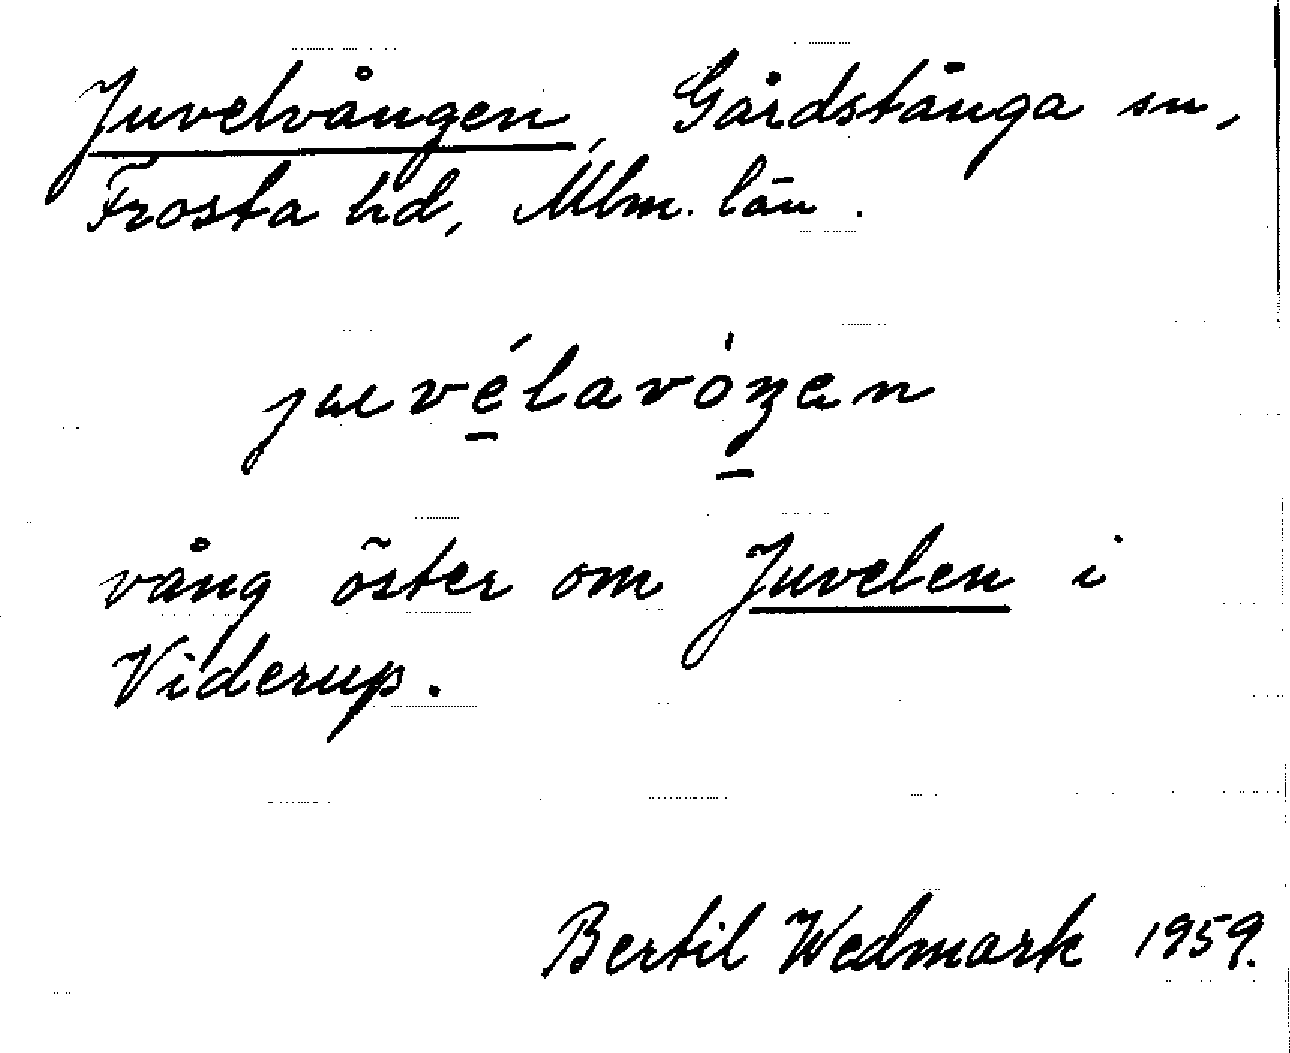 Juvelvången, Gårdstånga sn,
Frosta hd, Mlm. län.
juvélavóŋen
vång öster om Juvelen i
Viderup.
Bertil Wedmark 1959.